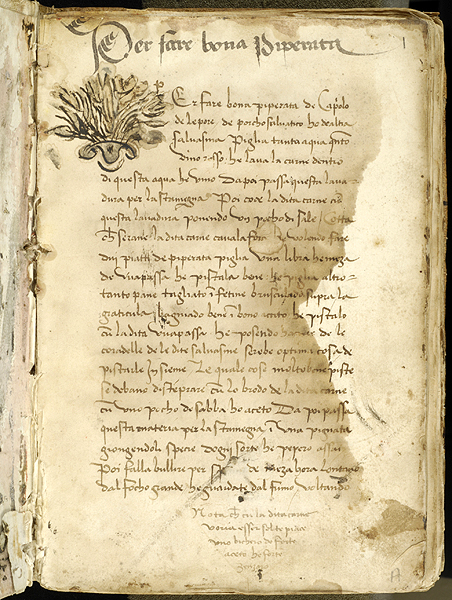 Per fare bona Piperata
1
Er fare bona piperata de Caprolo
de lepore de porcho salvatico ho de alta
salvasina Piglia tanta aqua qnto
vino rosso he lava la carne dentro
di questa aqua he vino Da poi passa questa lava
dura per la stamegna Poi coce la dita carne
questa lavadura ponendo un pocho di sale Cotta
che serane la dita carne cavala fora He volendo fare
dui piatti de piperata piglia una libra he meza
de uvapassa he pistala bene he piglia altro
tanto pane tagliato i fetine bruscuado supra la
graticula bagnado bene i bono aceto he pistalo
cu la dita uvapassa he posendo haver de le
coradelle de le dite salvasine serebe optima cosa de
pistarle insieme Le quale cose molto bene piste
se debano distemprare cu lo brodo de la dita carne
cu uno pocho de sabba ho aceto Da poi passa
questa materia per la stamegna i una pignata
giongendoli specie dogni sorte he pepero assai
Poi falla bullire per de meza hora lontano
dal focho grande he guardate dal fumo voltando
Nota che la dita carne
uno bichero de forte
aceto he forte